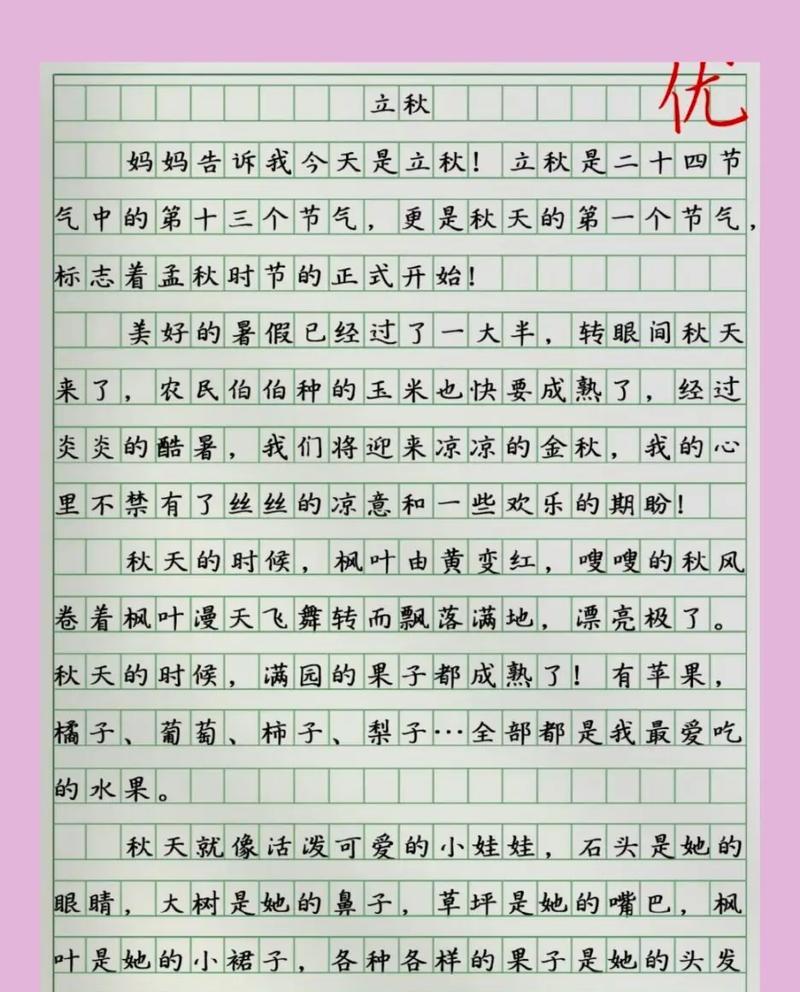 优
立秋
妈妈告诉我今天是立秋！立秋是二十四节
气中的第十三个节气，更是秋天的第一个节气，
标志着孟秋时节的正式开始！
美好的暑假已经过了一大半，转眼间秋天
来了，农民伯伯种的玉米也快要成熟了，经过
炎炎的酷暑，我们将迎来凉凉的金秋，我的心
里不禁有了丝丝的凉意和一些欢乐的期盼！
秋天的时候，枫叶由黄变红，嗖嗖的秋风
卷着枫叶漫天飞舞转而飘落满地，漂亮极了。
秋天的时候，满园的果子都成熟了！有苹果，
橘子、葡萄、柿子、梨子…全部都是我最爱吃
的水果。
秋天就像活泼可爱的小娃娃，石头是她的
眼睛，大树是她的鼻子，草坪是她的嘴巴，枫
叶是她的小裙子，各种各样的果子是她的头发